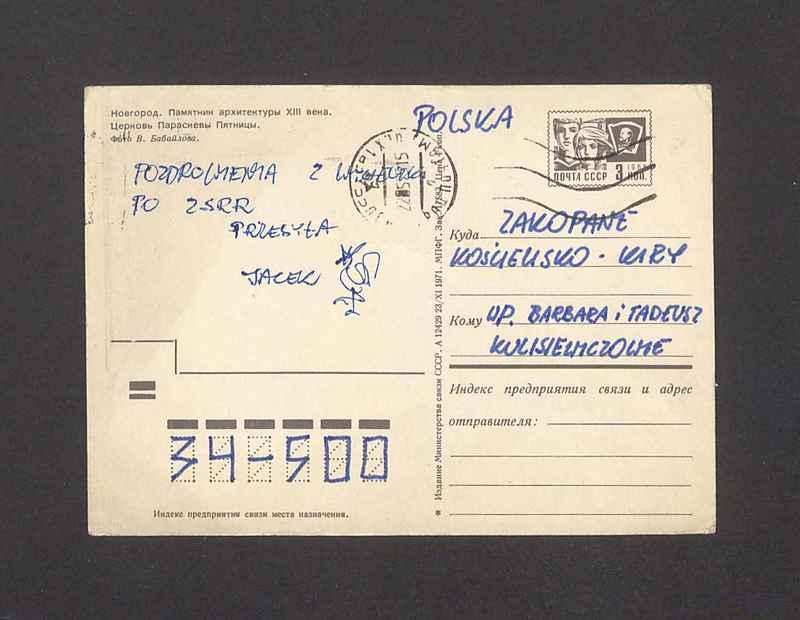 Новгород. Памятник архитектуры XIII века.
Церковь Параскевы Пятницы.
Фото В. Бабайлова.
POZDROWIENIA Z
PO ZSRR
PRZESYŁA
JACEK
POLSKA
ПОЧТА СССР
3 КОП.
Куда ZAKOPANE
KOŚCIELISKO - KIRY
Кому WP. BARBARA i TADEUSZ
Индекс предприятия связи и адрес
отправителя:
34-500
Индекс предприятия связи места назначения.
* Издание Министерства связи СССР. А 12429 23/XI 1971. МПФГ.